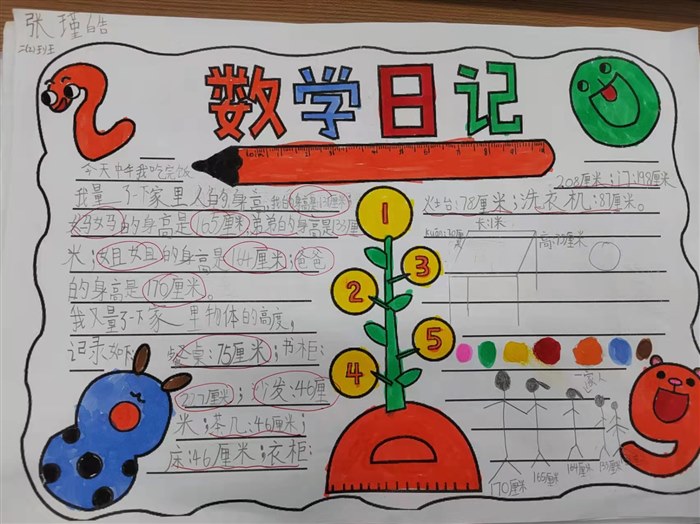 张瑾皓
二(2)班
数学日记
今天中午我吃完饭
我量了一下家里人的身高,我的身高是
妈妈的身高是165厘米,弟弟的身高是133厘
米;姐姐的身高是164厘米;爸爸
的身高是170厘米。
我又量了一下家里物体的高度,
记录如下:餐桌:75厘米;书柜:
217厘米;沙发:46厘
米;茶几:46厘米;
床:46厘米;衣柜:
208厘米;门:198厘米;
灶台:78厘米;洗衣机:87厘米。
长:1米
高:75厘米
1
3
2
5
4
一家人
170厘米
165厘米
164厘米
133厘米